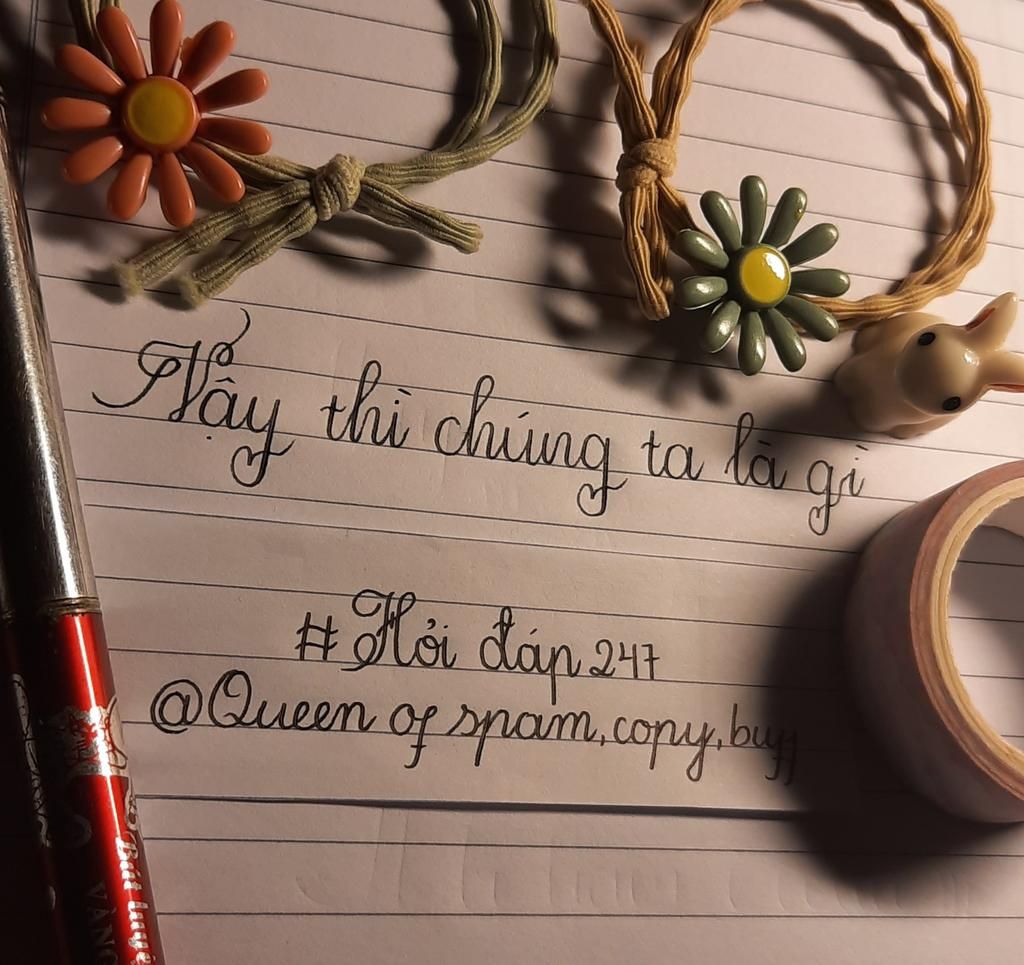 Vậy thì chúng ta là gì
#Hỏi đáp 247
@Queen of spam, copy, buff
Bút luyệ
VÀNG